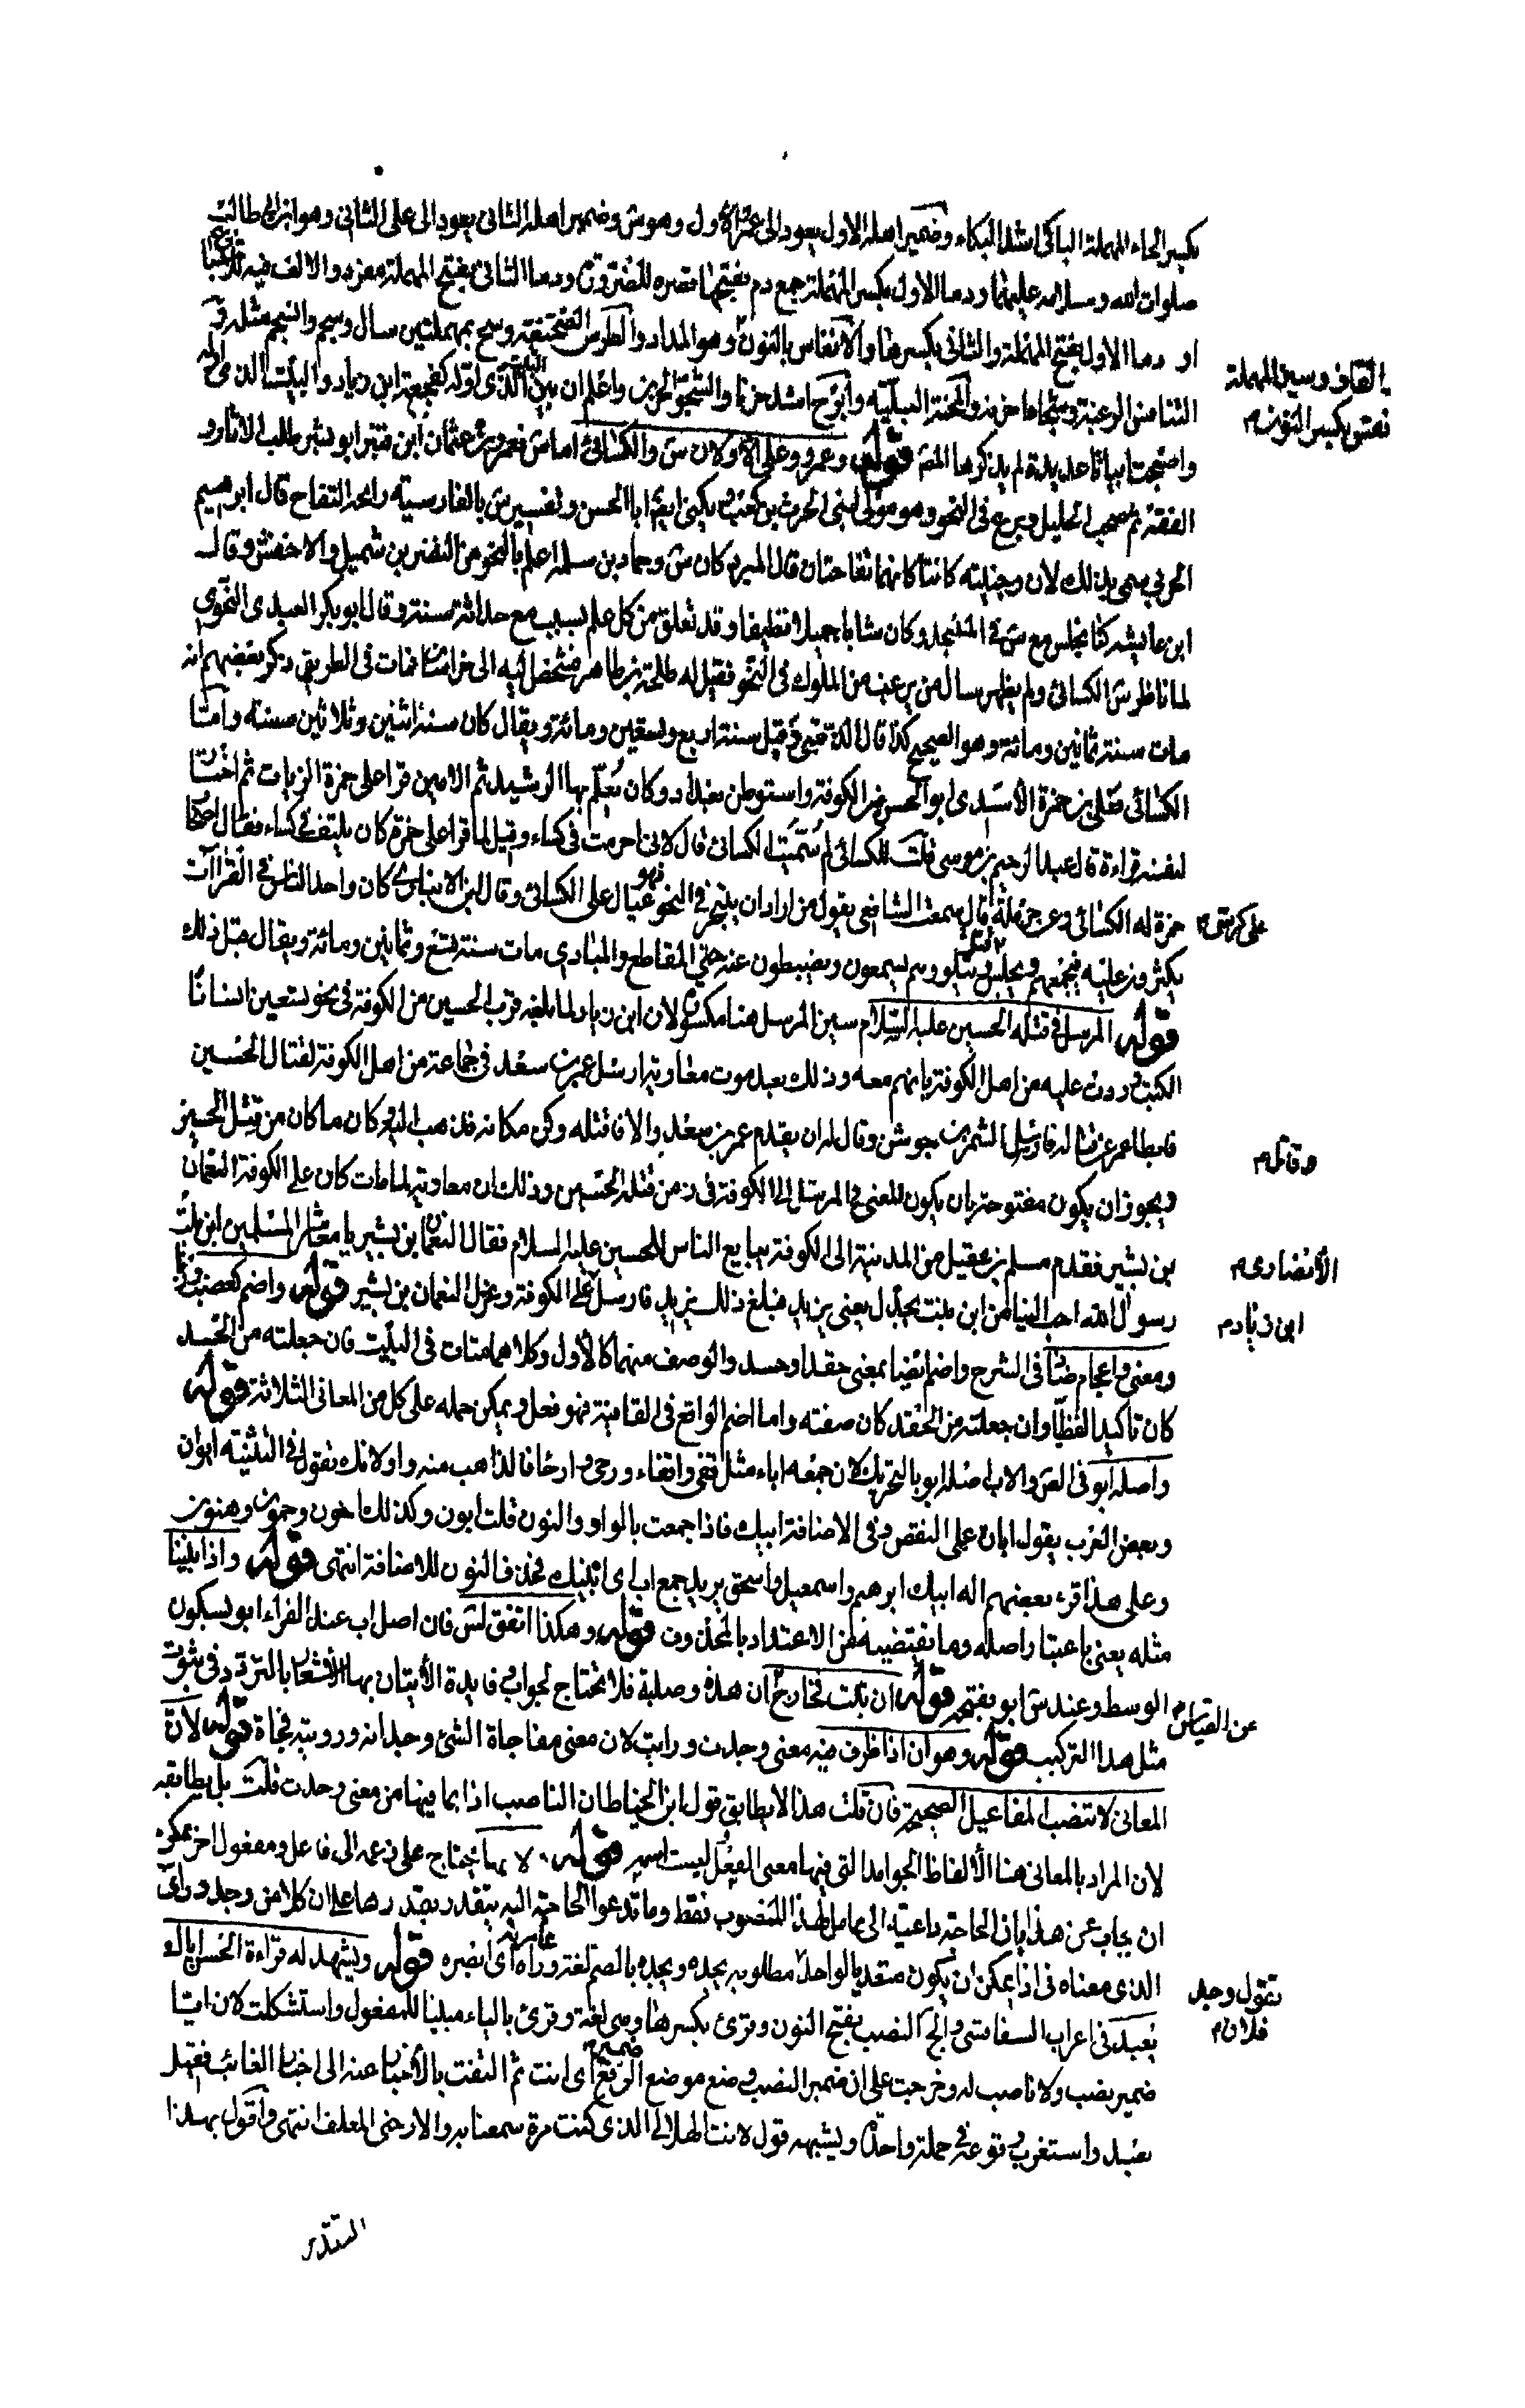 بكسر الحاء المهملة الباكي اشد البكاء وضمير اهله الاول يعود الى عمرو الاول وهوش وضمير اهله الثاني يعود الى على الثاني وهو ابن ابي طالب
صلوات الله وسلامه عليهما ودما الاول بكسر المهملة جمع دم بفتحها قصره للضرورة ودما الثاني بفتح المهملة مفرد والالف فيه
او دما الاول بفتح المهملة والثاني بكسرها والانقاس بالنون وهو المداد والطرس الصحيفة وسح بمهملتين سال وسجم والنجم مثله
الثنا من الرعية وشجاها حزنه والمحنة البلية وابرح اشد حزنا والشجو الحزن واعلم ان بين البيت الذي اوله كفجعة ابن زياد والبيت الذي
واضحت ابياتا عديدة لم يذكرها المص قوله وعمرو وعلى الاولان س والكسائي اما س فعمرو بن عثمان ابن قنبر ابو بشر طلب الاثار و
الفقه ثم صحب الخليل وبرع في النحو وهو مولى لبني الحرث بن كعب ويكنى ايضا ابا الحسن وتفسير س بالفارسية رائحة التفاح قال ابرهيم
الحربي سمي بذلك لان وجنتيه كانتا كانهما تفاحتان قال المبرد كان س وحماد بن سلمة اعلم بالنحو من النضر بن شميل والاخفش وقال
ابن عايشه كنا نجلس مع س في المسجد وكان شابا جميلا نظيفا وقد تعلق من كل علم بسبب مع حداثة سنه وقال ابو بكر العبدي النحوي
لما ناظر س الكسائي ولم يظهر سال من يرغب من الملوك في النحو فقيل له طلحة بن طاهر فشخص اليه الى خراسان فمات في الطريق ذكر بعضهم انه
مات سنة ثمانين ومائة وهو الصحيح كذا قال الذهبي وقيل سنة اربع وتسعين ومائة ويقال كان سنه اثنين وثلاثين سنه واما
الكسائي فعلي بن حمزة الاسدي ابو الحسن من الكوفة واستوطن بغداد وكان يعلم بها الرشيد ثم الامين قرا على حمزة الزيات ثم اختار
لنفسه قراءة قال عبد الرحيم بن موسى قلت للكسائي لم سميت الكسائي قال لاني احرمت في كساء وقيل لما قرا على حمزة كان يلتف في كساء فقال اصحاب
حمزة له الكسائي وعن حرملة قال سمعت الشافعي يقول من اراد ان يتبحر في النحو فهو عيال على الكسائي وقال ابن الانباري كان واحد الناس في القراآت
يكثرون عليه فيجمعهم ويجلس ويتلو وهم يسمعون ويضبطون عنه حتى المقاطع والمبادي مات سنة تسع وثمانين ومائة ويقال قبل ذلك
قوله المرسل في قتله الحسين عليه السلام سين المرسل هنا مكسورة لان ابن زياد لما بلغه قرب الحسين من الكوفة في نحو سبعين انسانا
الكتب وردت عليه من اهل الكوفة بانهم معه وذلك بعد موت معاوية ارسل عمر بن سعد في جماعة من اهل الكوفة لقتال الحسين
فابطا عمر عن قتاله فارسل الشمر بن جوشن وقال له ان يقدم عمر بن سعد والا فاقتله وكن مكانه فذهب اليه وكان ما كان من قتل الحسين
ويجوز ان يكون مفتوحة بان يكون المعنى في المرسل الى الكوفة في زمن قتله الحسين وذلك ان معاوية لما مات كان على الكوفة النعمان
بن بشير فقدم مسلم بن عقيل من المدينة الى الكوفة يبايع الناس للحسين عليه السلام فقال النعمان بن بشير يا معاشر المسلمين ابن بنت
رسول الله احب الينا من ابن بنت بحدل يعني يزيد فبلغ ذلك يزيد فارسل على الكوفة وعزل النعمان بن بشير قوله واضم كغضب وزنا
ومعنى واعجام ضاد في الشرح واضم ايضا بمعنى حقد او حسد والوصف منهما كالاول وكلاهما متات في البيت فان جعلته من الحسد
كان تاكيدا لفظيا وان جعلته من الحقد كان صفته واما اضم الواقع في القافية فهو فعل ويمكن حمله على كل من المعاني الثلاثة قوله
واصله ابو في الص والاب اصله ابو بالتحريك لان جمعه اباء مثل قفى واقفاء ورحى وارحاء فالذاهب منه واو لانك تقول في التثنية ابوان
وبعض العرب يقول ابان على النقص وفي الاضافة ابيك فاذا جمعت بالواو والنون قلت ابون وكذلك اخون وحمون وهنون
وعلى هذا قرء بعضهم اله ابيك ابرهيم واسمعيل واسحق يريد جمع اب اي ابينك فحذف النون للاضافة انتهى قوله واذا بلينا
مثله يعني باعتبار اصله وما يقتضيه من الاعتداد بالمحذوف قوله وهكذا اتفق لس فان اصل اب عند الفراء ابو بسكون
الوسط وعند س ابو بفتحه قوله ان ثبت تخارج ان هذه وصلية فلا تحتاج لجواب وفايدة الاتيان بها الاشعار بالتردد في ثبوت
مثل هذا التركيب قوله وهو ان اذا ظرف فيه معنى وجدت ورايت لان معنى مفاجاة الشئ وجدانه ورويته فجاة قوله لان
المعاني لا تنصب المفاعيل الصحيحة فان قلت هذا لا يطابق قول ابن الخياط ان الناصب اذا بما فيها من معنى وجدت قلت بل يطابقه
لان المراد بالمعاني هنا الالفاظ الجوامد التي فيها معنى الفعل ليست اسم قوله لا نها يحتاج على زعمه الى فاعل ومفعول اخر يمكن
ان يجاب عن هذا بان الحاجة داعية الى عامل لهذا المنصوب فقط وما تدعوا الحاجة اليه يتقدر بقدرها على ان كلا من وجد وراى
الذي معناه في اذا يمكن ان يكون متعديا لواحد مطلوبه يجده ويجده بالضم لغة عامرية وراه اي ابصره قوله ويشهد له قراءة الحسن اياك
يعبد في اعراب السفاقسي والجمهور النصب بفتح النون وقرئ بكسرها وهي لغة وقرئ بالياء مبنيا للمفعول واستشكلت لان ايا
ضمير نصب ولا ناصب له وخرجت على ان ضمير النصب وضع موضع ضمير الرفع اي انت ثم التفت بالاخبار عنه الى اخبار الغائب فقيل
يعبد واستغرب وقوعه في جملة واحدة ويشبهه قول لانت الهلالي الذي كنت مرة سمعنا به والارحبي المعلف انتهى واقول بهذا
القاف وسين المهملة
نقس بكسر النون م
على كرسي م
وقاتل م
الانصاري م
ابن زياد م
عن القياس م
تقول وجد
فلان م
التقدير